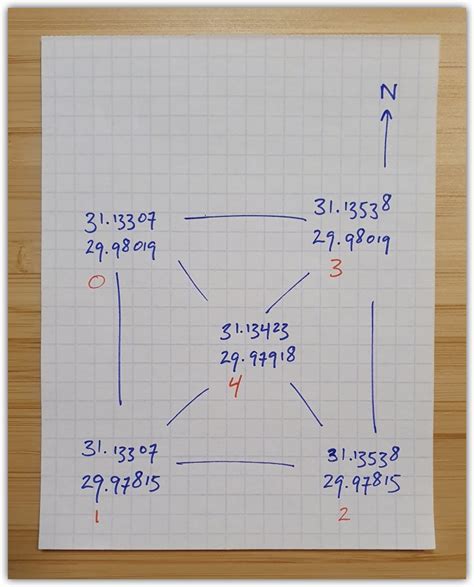 N
31.13307
29.98019
0
31.13538
29.98019
3
31.13423
29.97918
4
31.13307
29.97815
1
31.13538
29.97815
2